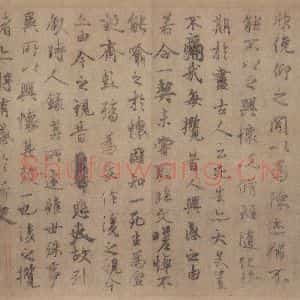 欣俛仰之間以為陳迹猶不
能不以之興懷況脩短隨化終
期於盡古人云死生亦大矣豈
不痛哉每攬昔人興感之由
若合一契未嘗不臨文嗟悼不
能喻之於懷固知一死生為虛
誕齊彭殤為妄作後之視今
亦由今之視昔悲夫故列
敘時人錄其所述雖世殊事
異所以興懷其致一也後之攬
者亦將有感於斯文
Shufawang.CN